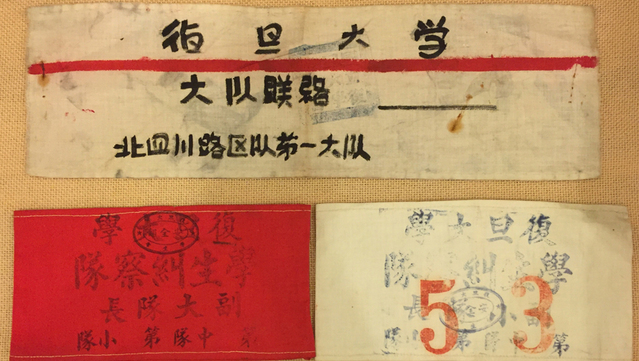 復旦大学
大队联络
北四川路区队第一大队
復旦大學
學生糾察隊
副大隊長
第 中隊 第 小隊
復旦大學
學 糾 隊
小 長
第
53